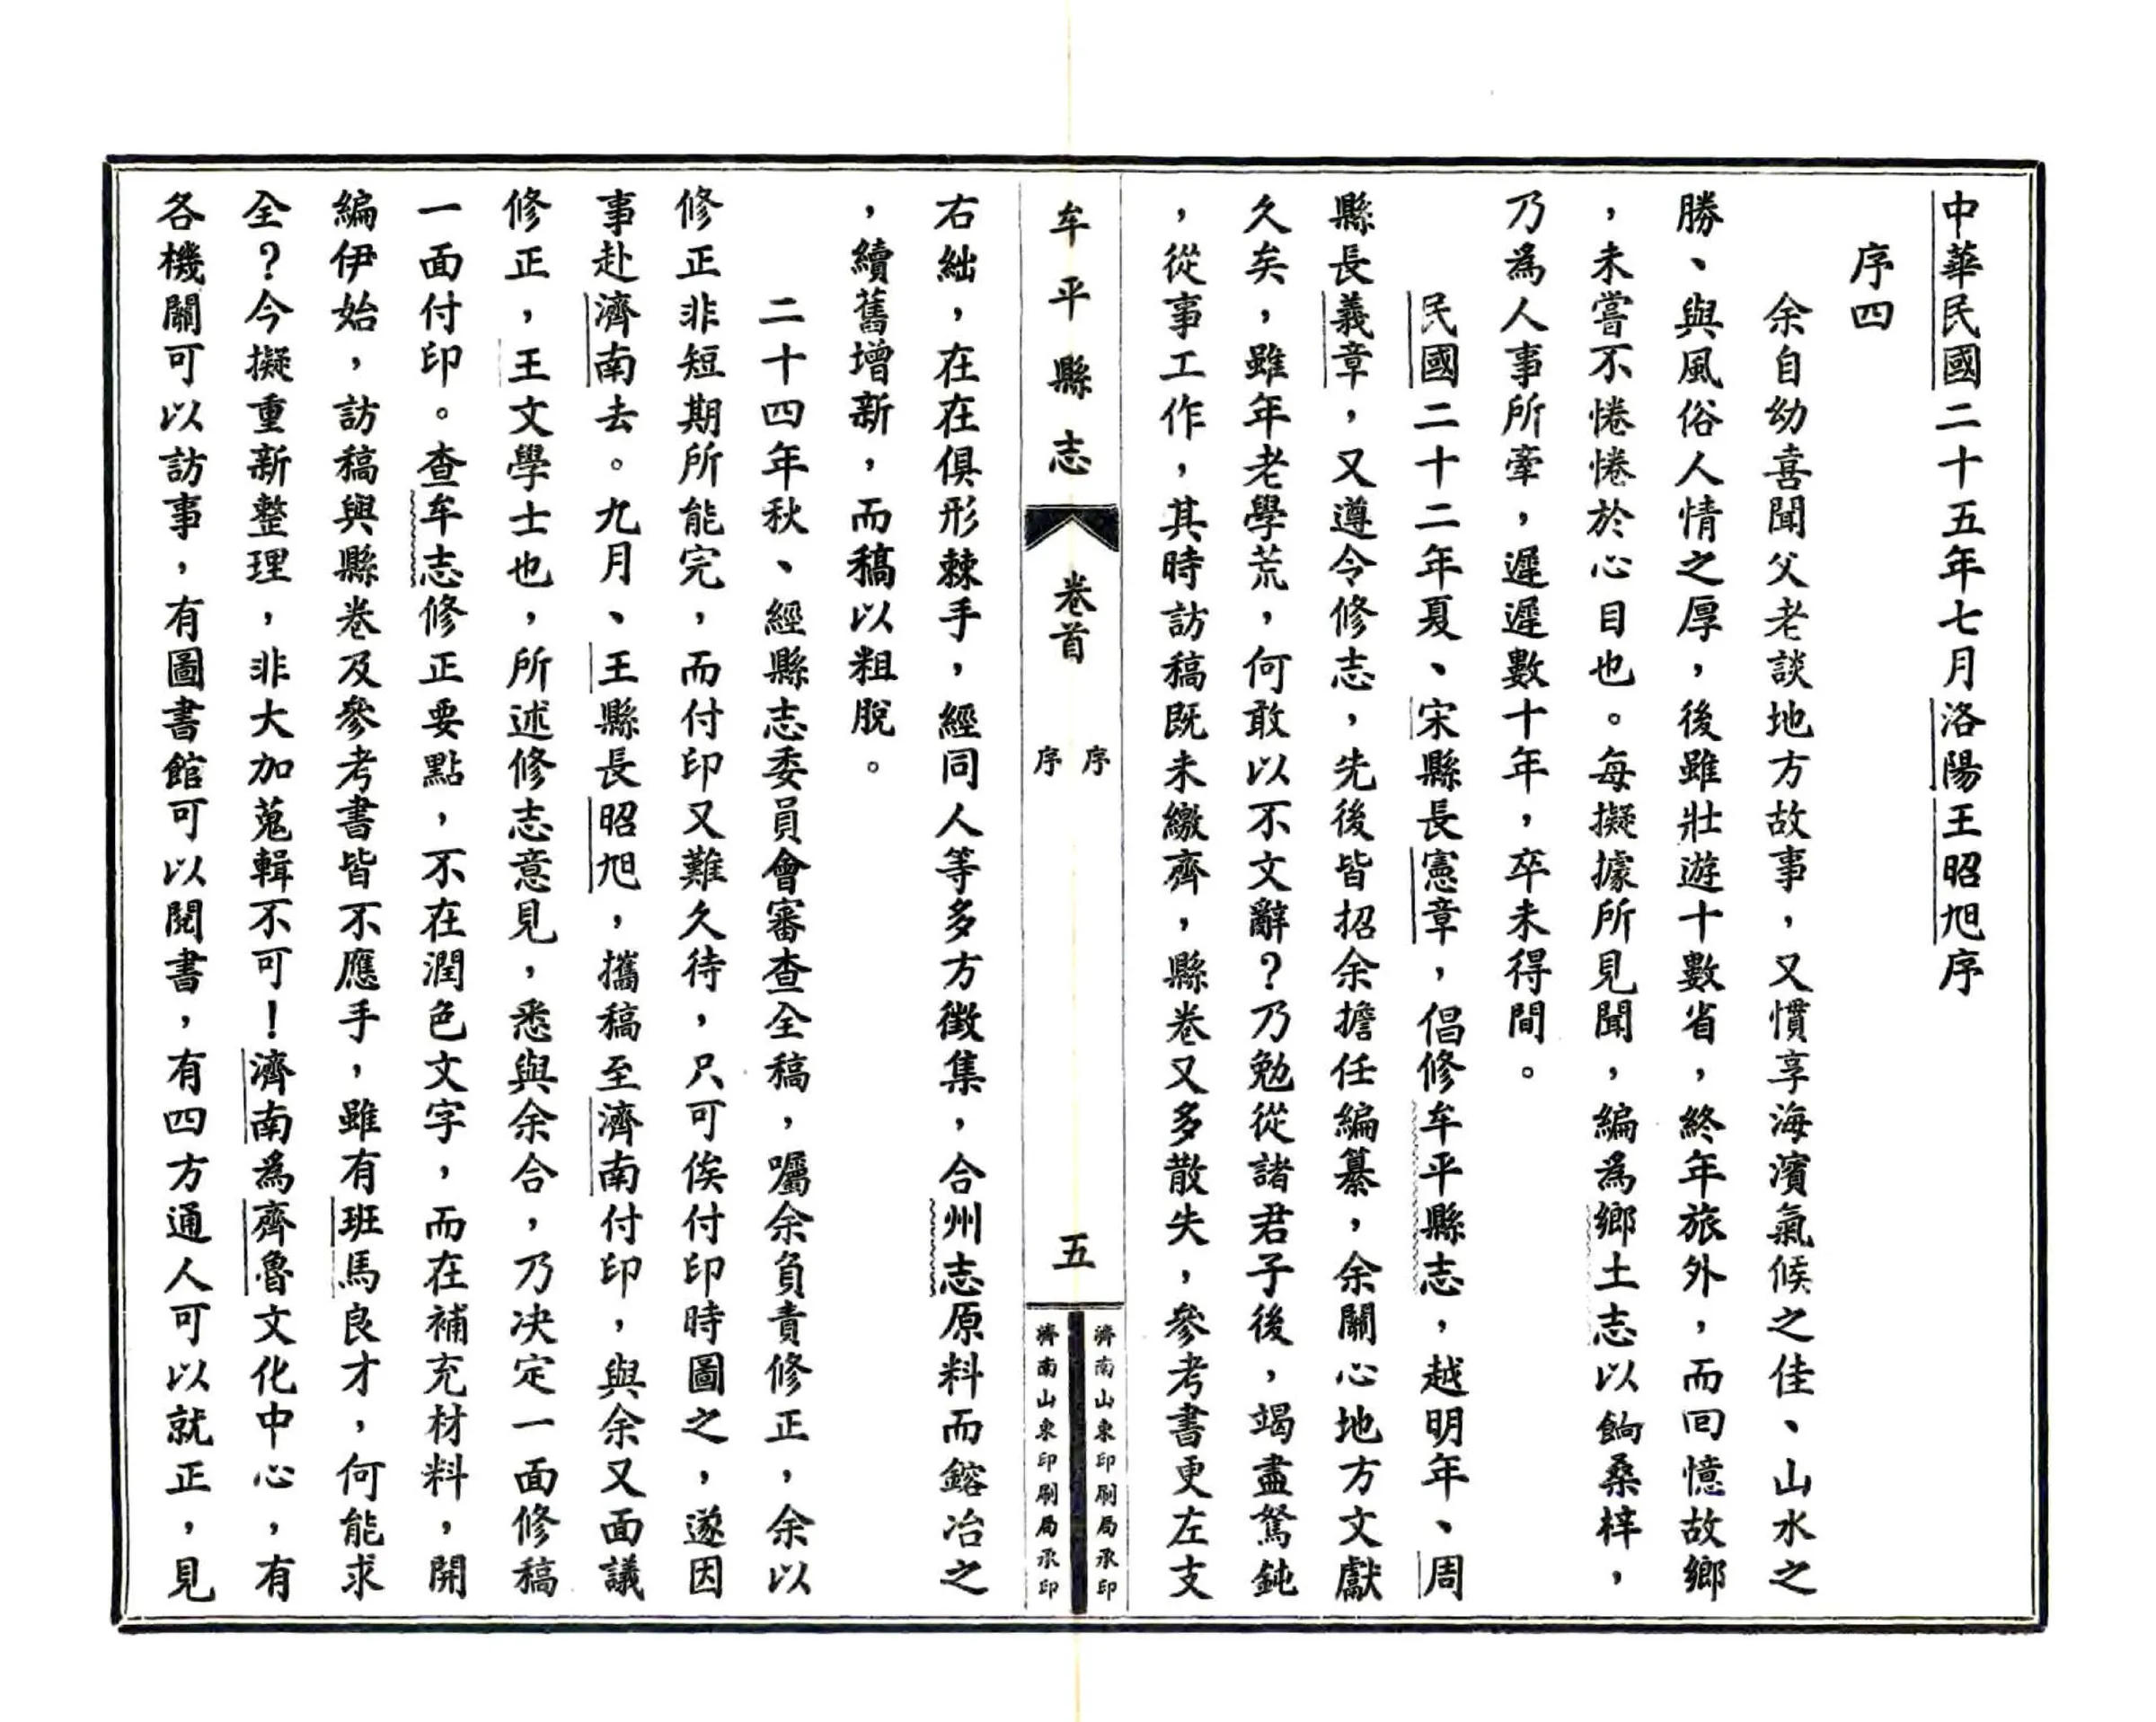 中華民國二十五年七月洛陽王昭旭序
序四
余自幼喜聞父老談地方故事，又慣享海濱氣候之佳、山水之
勝、與風俗人情之厚，後雖壯遊十數省，終年旅外，而回憶故鄉
，未嘗不惓惓於心目也。每擬據所見聞，編為鄉土志以餉桑梓，
乃為人事所牽，遲遲數十年，卒未得間。
民國二十二年夏、宋縣長憲章，倡修牟平縣志，越明年、周
縣長義章，又遵令修志，先後皆招余擔任編纂，余關心地方文獻
久矣，雖年老學荒，何敢以不文辭？乃勉從諸君子後，竭盡駑鈍
，從事工作，其時訪稿既未繳齊，縣卷又多散失，參考書更左支
牟平縣志
卷首
序
序
五
濟南山東印刷局承印
濟南山東印刷局承印
右絀，在在俱形棘手，經同人等多方徵集，合州志原料而鎔冶之
，續舊增新，而稿以粗脫。
二十四年秋、經縣志委員會審查全稿，囑余負責修正，余以
修正非短期所能完，而付印又難久待，只可俟付印時圖之，遂因
事赴濟南去。九月、王縣長昭旭，攜稿至濟南付印，與余又面議
修正，王文學士也，所述修志意見，悉與余合，乃決定一面修稿
一面付印。查牟志修正要點，不在潤色文字，而在補充材料，開
編伊始，訪稿與縣卷及參考書皆不應手，雖有班馬良才，何能求
全？今擬重新整理，非大加蒐輯不可！濟南為齊魯文化中心，有
各機關可以訪事，有圖書館可以閱書，有四方通人可以就正，見